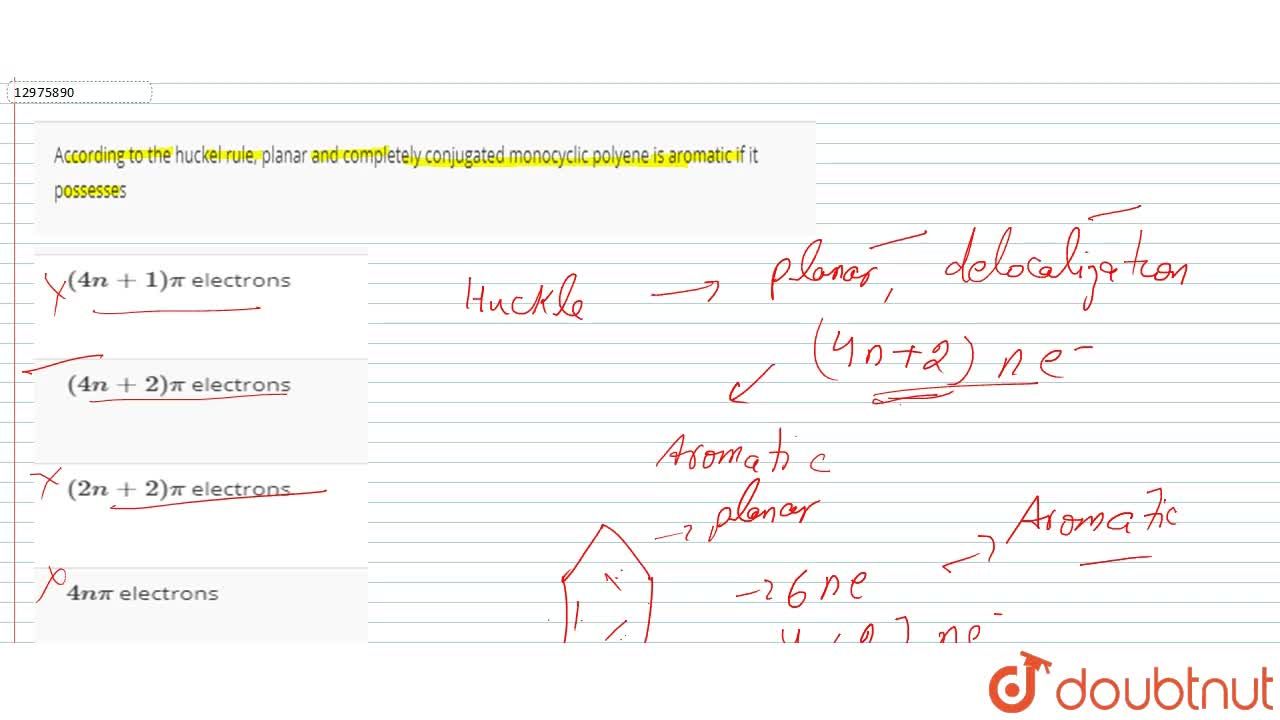 12975890
According to the huckel rule, planar and completely conjugated monocyclic polyene is aromatic if it
possesses
(4n + 1)π electrons
(4n + 2)π electrons
(2n + 2)π electrons
4nπ electrons
Huckle → planar, delocalization
(4n+2) π e⁻
Aromatic
→ planar
→ 6 π e
Aromatic
doubtnut